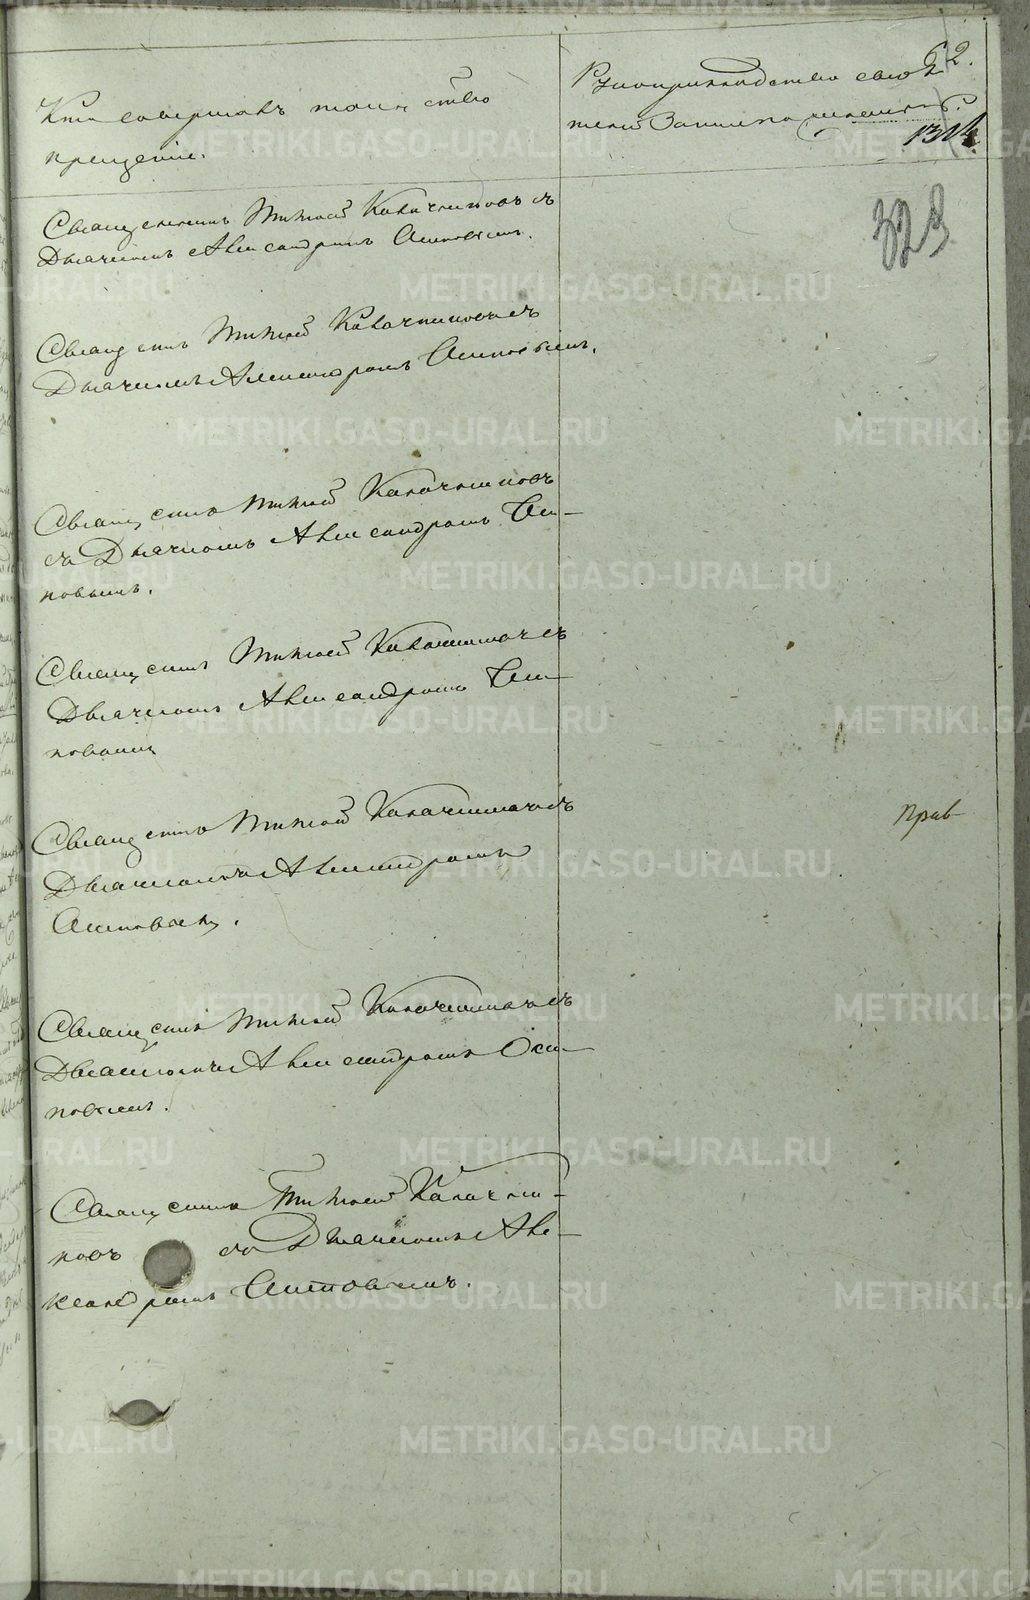 62.
Кто совершалъ таинство
крещенiе.
Рукоприкладство свидѣ
телей записки
1314
323
Священникъ Тихонъ Калачниковъ съ
Дьячкомъ Александромъ Осиповымъ.
Священ никъ Тихонъ Калачниковъ съ
Дьячкомъ Александромъ Осиповымъ.
Священ никъ Тихонъ Калачниковъ
съ Дьячкомъ Александромъ Оси-
повымъ.
Священ никъ Тихонъ Калачниковъ съ
Дьячкомъ Александромъ Оси-
повымъ
Священ никъ Тихонъ Калачниковъ съ
Дьячкомъ Александромъ
Осиповымъ.
Прав-
Священ никъ Тихонъ Калачниковъ съ
Дьячкомъ Александромъ Оси-
повымъ.
Священ никъ Тихонъ Калачни-
ковъ съ Дьячкомъ Але-
ксандромъ Осиповымъ.
METRIKI.GASO-URAL.RU